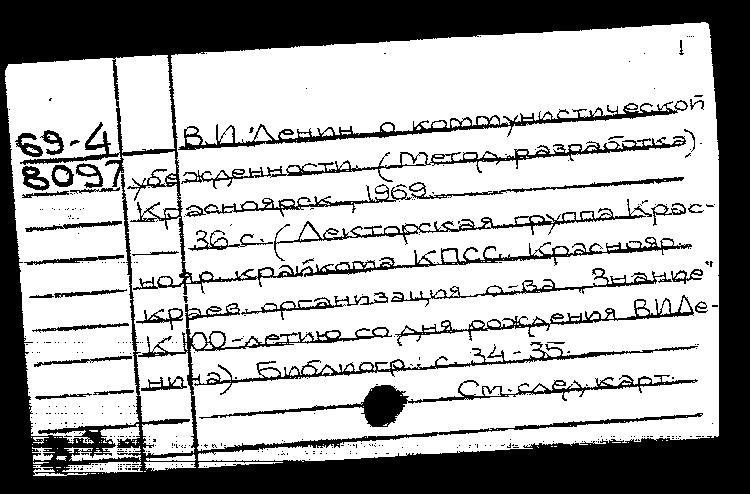 1
69-4
8097
В.И. Ленин о коммунистической
убежденности. (Метод. разработка).
Красноярск, 1969.
36 с. (Лекторская группа Крас-
нояр. крайкома КПСС. Краснояр.
краев. организация о-ва „Знание"
К 100-летию со дня рождения В.И.Ле-
нина) Библиогр.: с. 34-35.
См. след. карт.